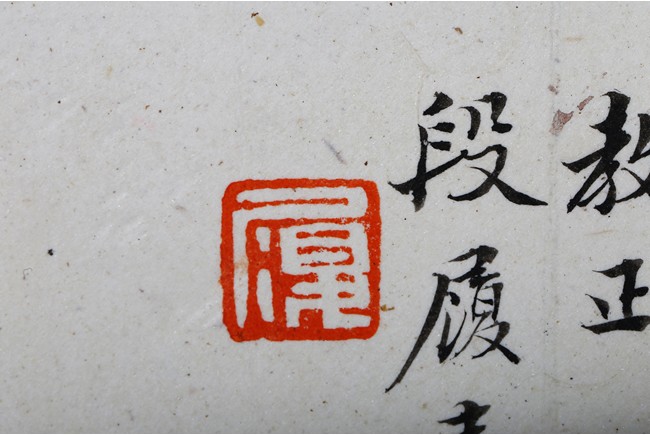 教正
段履